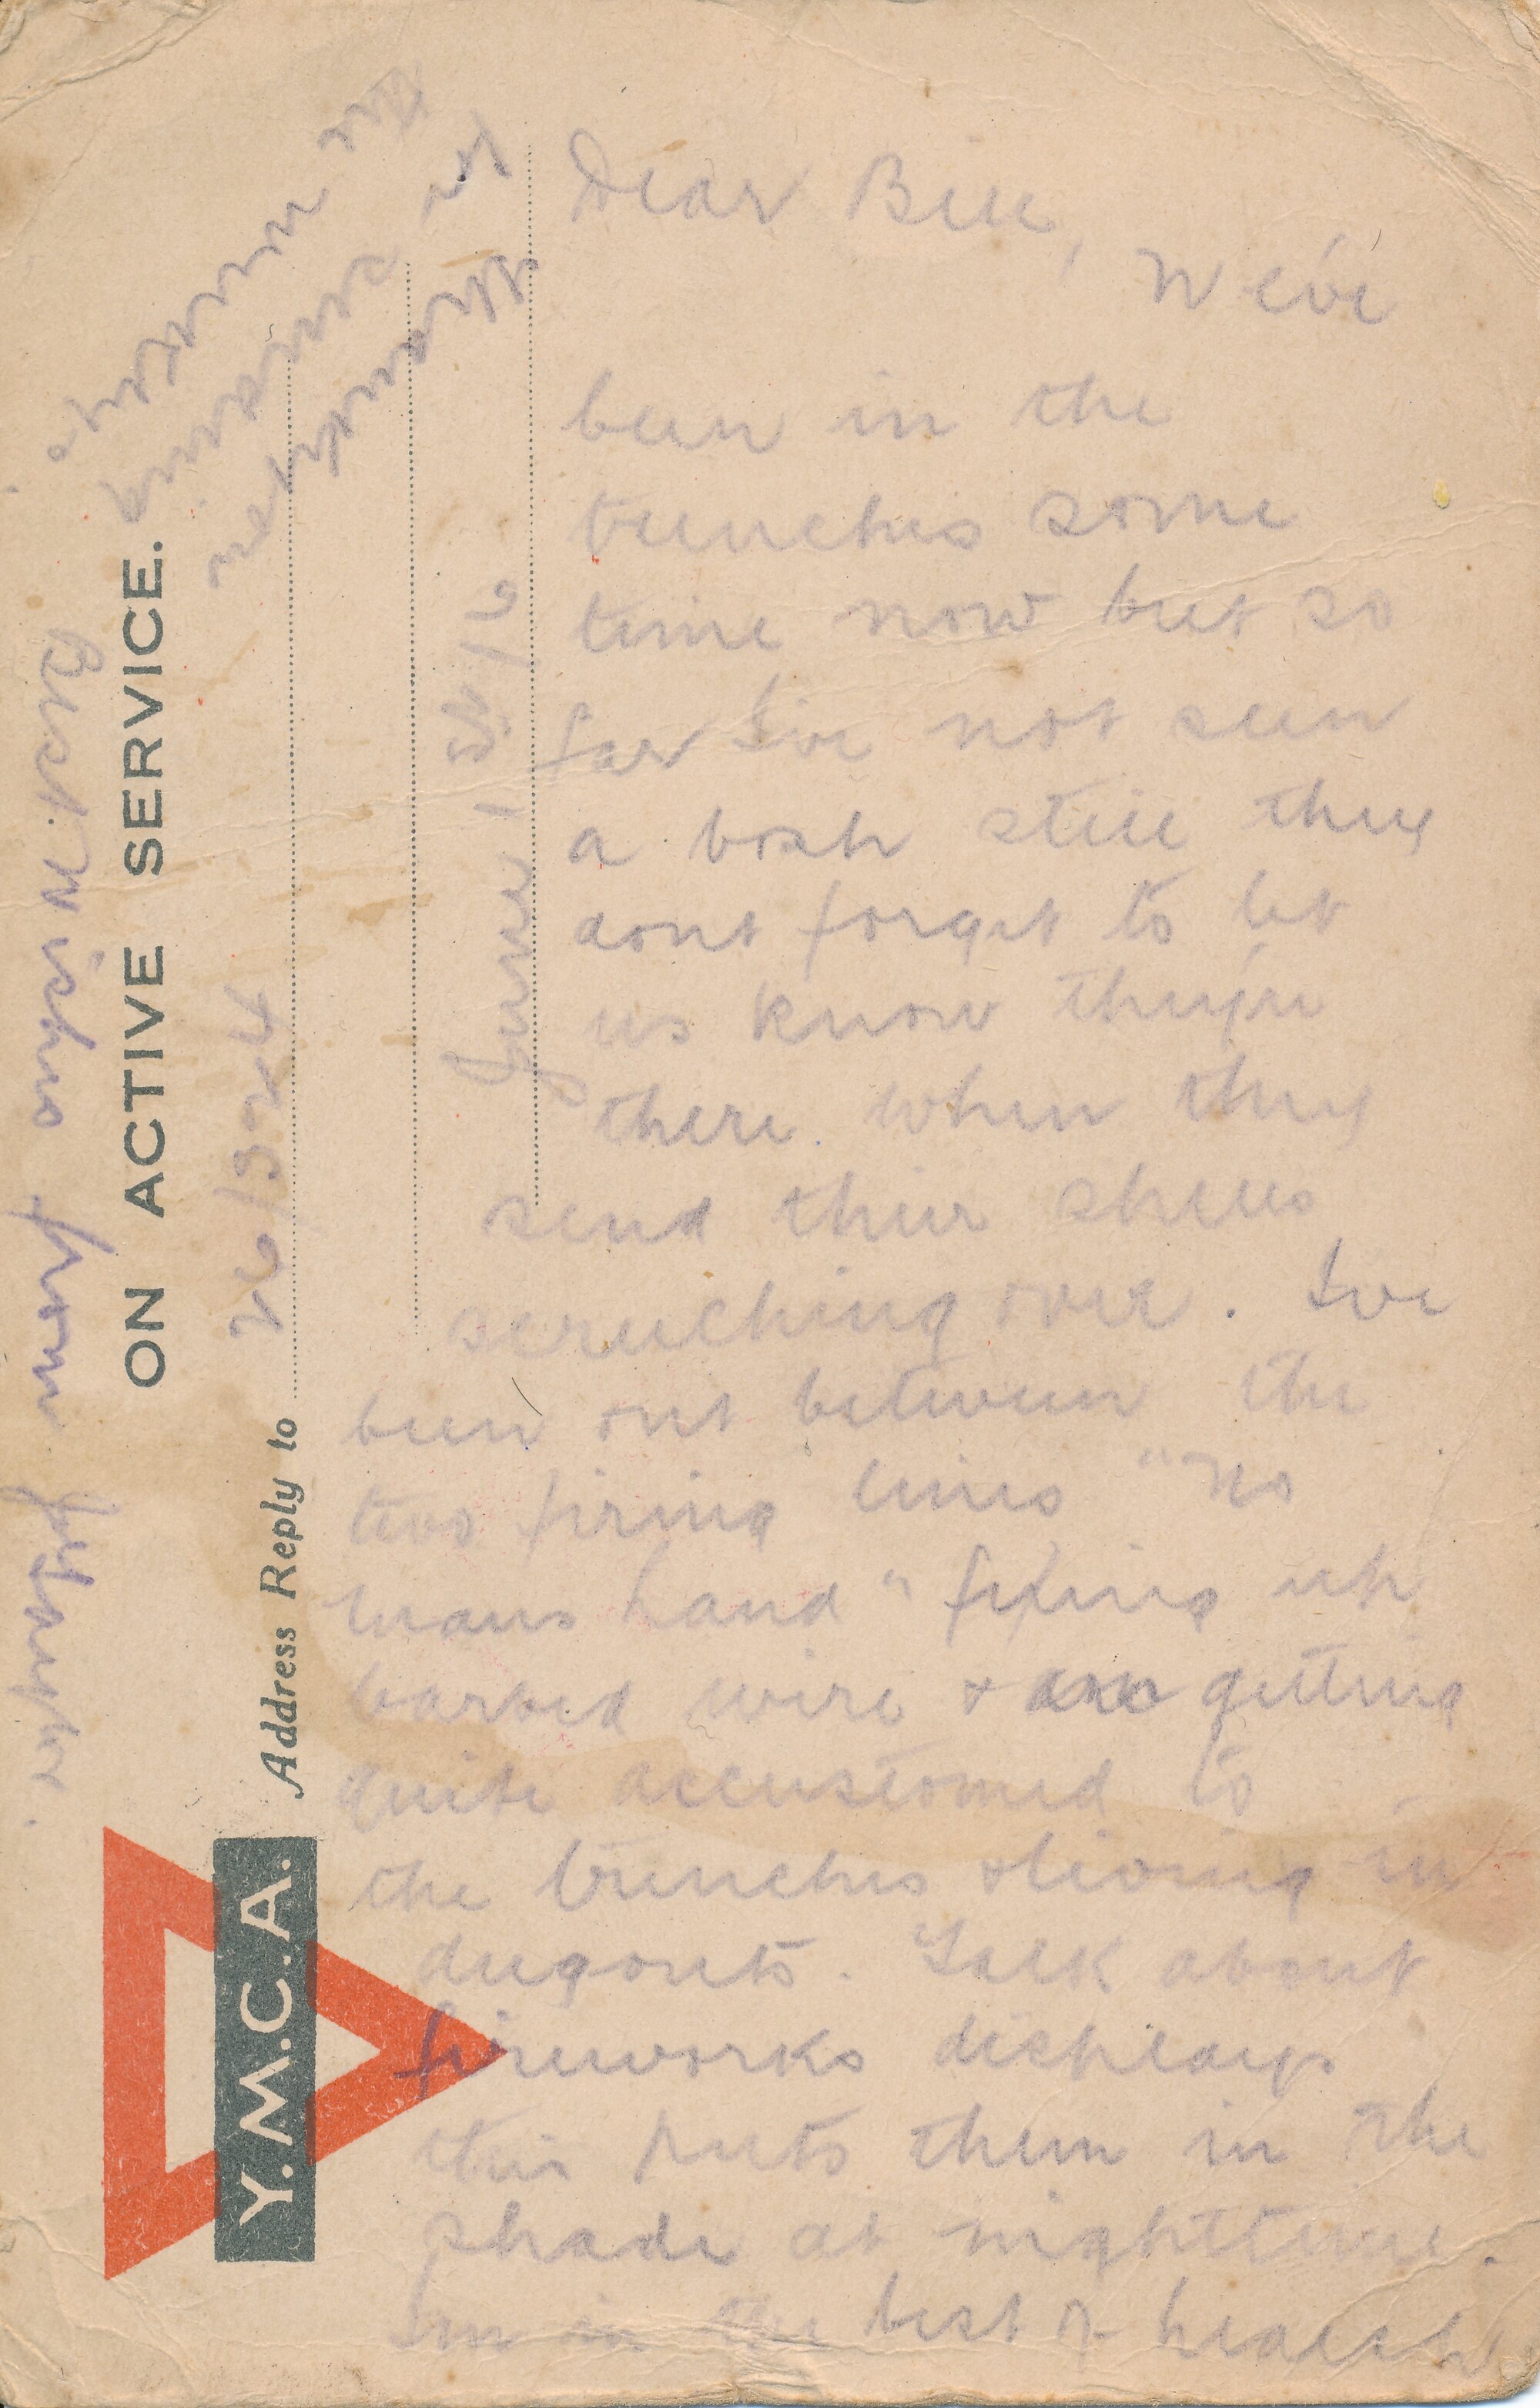 Dear Bill,
We've
been in the
trenches some
time now but so
far I've not seen
a bosh still they
dont forget to let
us know they're
there when they
send their shells
screeching over. Ive
been out between the
two firing lines "No
mans Land" fixing up
barbed wire & am getting
quite accustomed to
the trenches & living in
dugouts. Talk about
fireworks displays
this puts them in the
shade at nighttime.
Im in the best of health
Best Wishes from
ON ACTIVE SERVICE.
Address Reply to
June
Y.M.C.A.